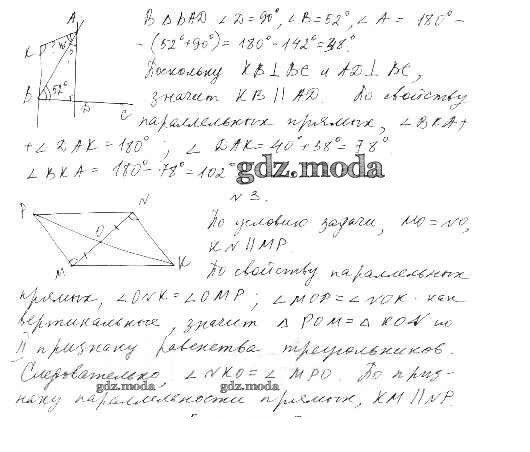 В Δ BAD ∠D=90°, ∠B=52°, ∠A = 180° -
- (52°+90°) = 180° - 142° = 38°.
Поскольку KB⊥BC и AD⊥BC,
значит KB ∥ AD. По свойству
параллельных прямых, ∠BKA +
+ ∠DAK = 180° ; ∠DAK = 40°+38° = 78°
∠BKA = 180° - 78° = 102°
A
K
40°
B
52°
D
C
gdz.moda
N 3.
По условию задачи, MO = NO,
KN ∥ MP
По свойству параллельных
прямых, ∠ONK = ∠OMP ; ∠MOP = ∠NOK как
вертикальные, значит Δ POM = Δ KON по
II признаку равенства треугольников.
Следовательно, ∠NKO = ∠MPO. По приз-
наку параллельности прямых, KM ∥ NP.
P
N
O
M
K
gdz.moda
gdz.moda